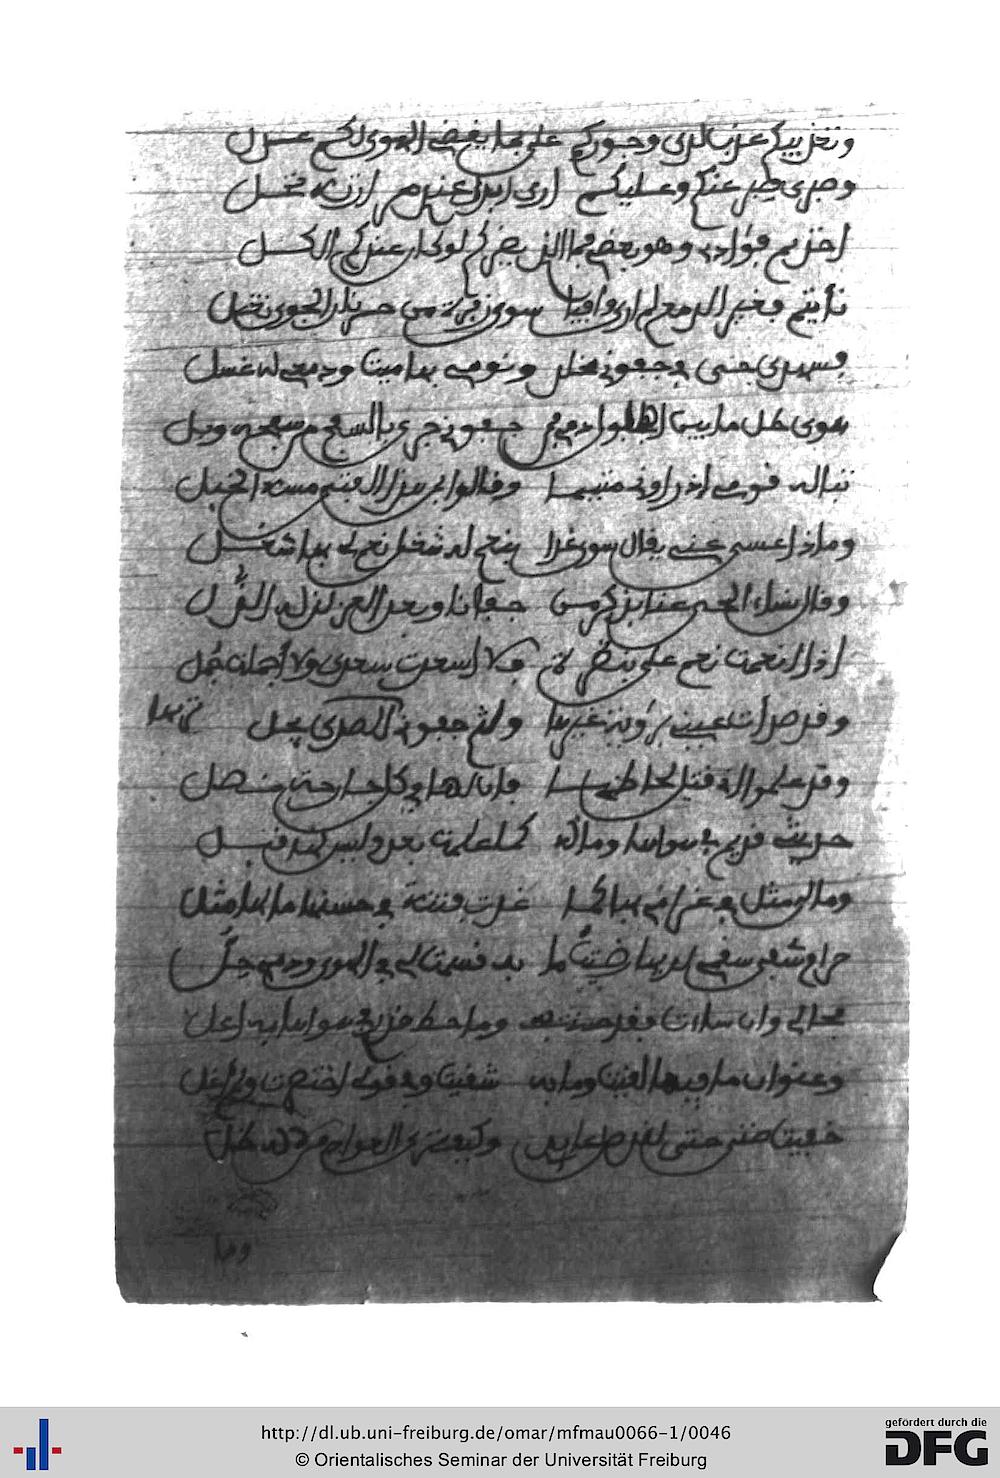 وتعذيبكم عذب لدي وجوركم علي بما يقضي الهوى لكم عدل
وصبري صبر عنكم وعليكم ارى ابدا عندي مرارته تحل
اخذتم فؤادي وهو بعضي فما الذي يضركم لو كان عندكم الكل
نأيتم فغير الدمع لم ار وافيا سوى زفرة من حر نار الجوى تغل
فسهدي حي في جفوني مخلد ونومي بها ميت ودمعي له غسل
هوى طل ما بين الطلول دمي فمن جفوني جرى بالسفح من سفحه وبل
تباله قومي اذ راوني متيما وقالوا بمن هذا الفتى مسه الخبل
وماذا عسى عني يقال سوى غدا بنعم له شغل نعم لي بها شغل
وقال نساء الحي عنا بذكر من جفانا وبعد العز لذ له الذل
اذا انعمت نعم علي بنظرة فلا اسعدت سعدى ولا اجملت جمل
وقد صدأت عيني برؤية غيرها ولثم جفوني للصدى يجل تربها
وقد علموا اني قتيل لحاظها فان لها في كل جارحة نصل
حديثي قديم في هواها وماله كما علمت بعد وليس له قبل
ومالي مثل في غرامي بها كما غدت فتنة في حسنها ما لها مثل
حرام شفى سقمي لديها رضيت ما به قسمت لي في الهوى ودمي حل
فحالي وان ساءت فقد حسنت به وما حط قدري في هواها به اعل
وعنوان ما فيها لقيت وما به شقيت وفي قولي اختصرت ولم اغل
خفيت ضنى حتى لقد ضل عايدي وكيف ترى العواد من لا له ظل
وما
http://dl.ub.uni-freiburg.de/omar/mfmau0066-1/0046
© Orientalisches Seminar der Universität Freiburg
gefördert durch die
DFG